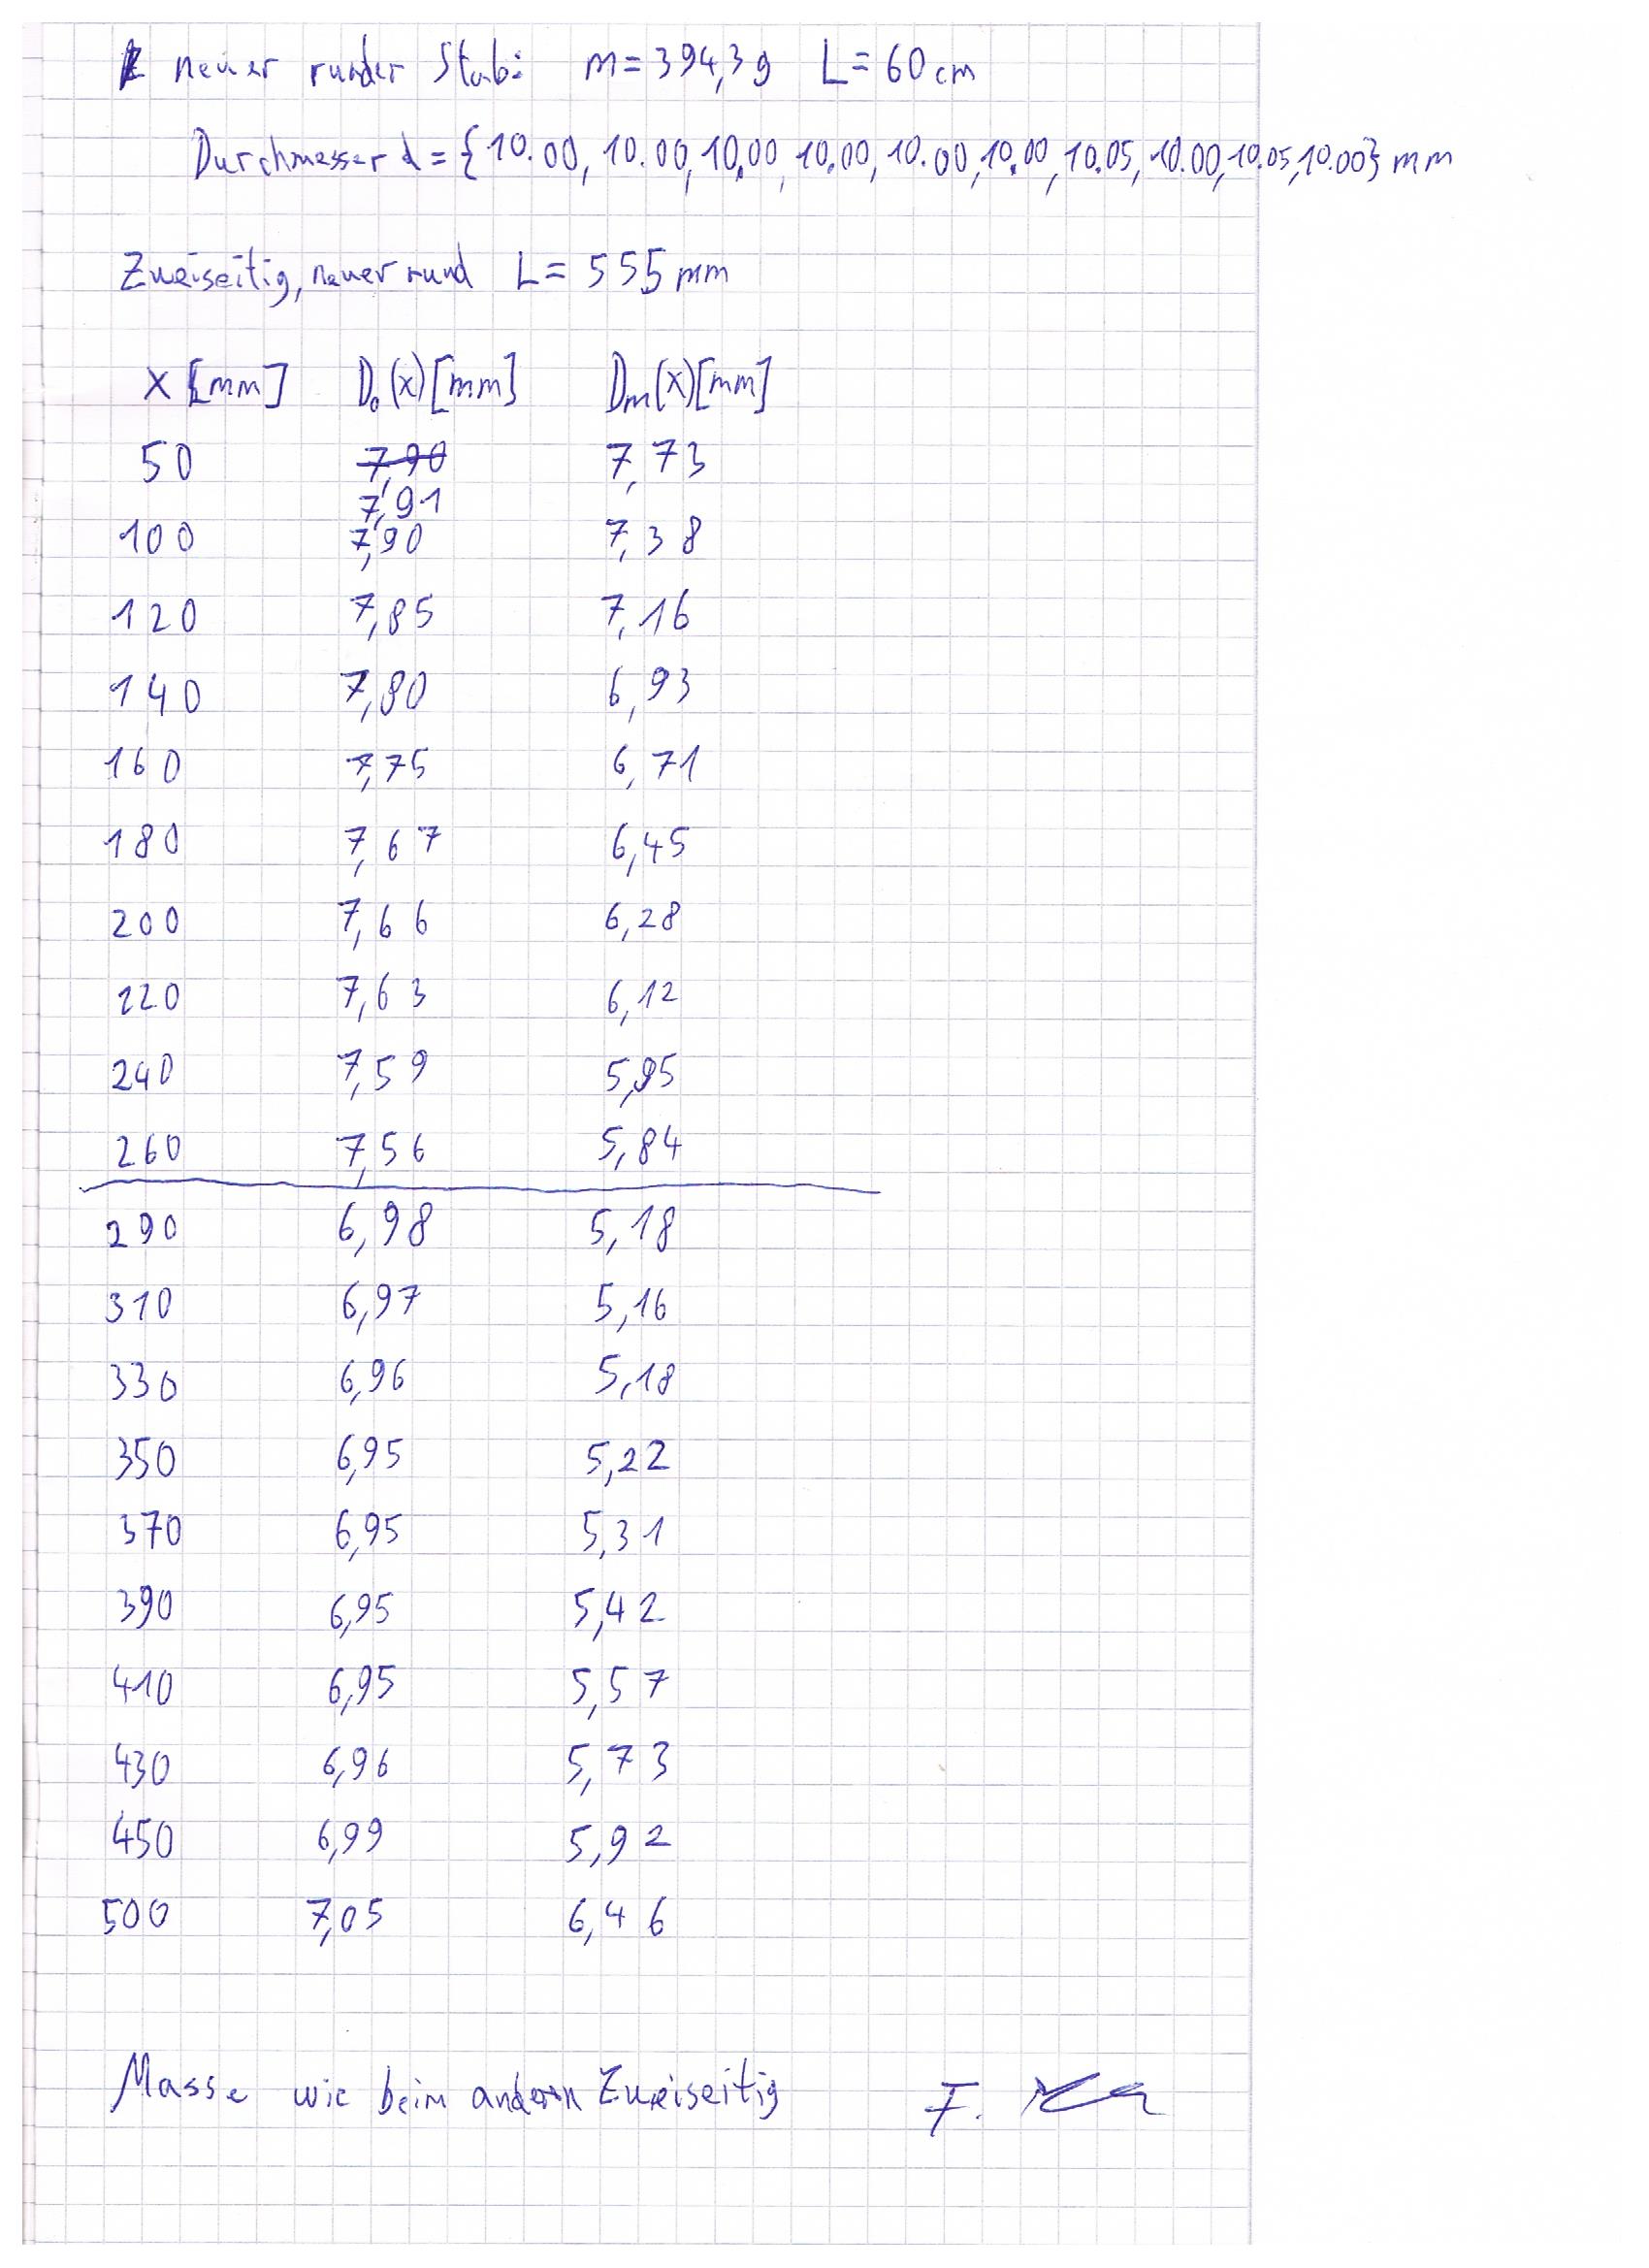 neuer runder Stab: m = 394,3 g L = 60 cm
Durchmesser d = {10.00, 10.00, 10.00, 10.00, 10.00, 10.00, 10.05, 10.00, 10.05, 10.00} mm
Zweiseitig, neuer rund L = 555 mm
x [mm] D₀(x) [mm] Dm(x) [mm]
50 7,90 7,73
7,91
100 7,90 7,38
120 7,85 7,16
140 7,80 6,93
160 7,75 6,71
180 7,67 6,45
200 7,66 6,28
220 7,63 6,12
240 7,59 5,95
260 7,56 5,84
290 6,98 5,18
310 6,97 5,16
330 6,96 5,18
350 6,95 5,22
370 6,95 5,31
390 6,95 5,42
410 6,95 5,57
430 6,96 5,73
450 6,99 5,92
500 7,05 6,46
Masse wie beim andern Zweiseitig F.